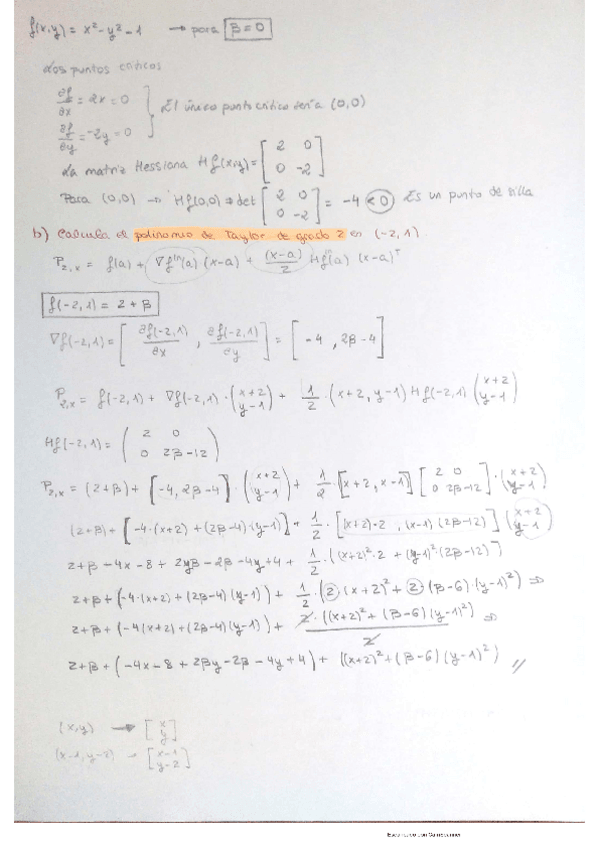 f(x,y) = x² - y² - 1 → para β = 0
Los puntos críticos
∂f/∂x = 2x = 0
∂f/∂y = -2y = 0 } El único punto crítico sería (0,0)
La matriz Hessiana Hf(x,y) = [2 0; 0 -2]
Para (0,0) → Hf(0,0) → det [2 0; 0 -2] = -4 < 0 Es un punto de silla
b) Calcula el polinomio de Taylor de grado 2 en (-2,1)
P₂,ₓ = f(a) + ∇f(a) (x-a) + (x-a)/2 Hf(a) (x-a)ᵀ
f(-2,1) = 2 + β
∇f(-2,1) = [∂f(-2,1)/∂x , ∂f(-2,1)/∂y] = [-4, 2β-4]
P₂,ₓ = f(-2,1) + ∇f(-2,1) · (x+2; y-1) + 1/2 · (x+2, y-1) Hf(-2,1) (x+2; y-1)
Hf(-2,1) = (2 0; 0 2β-12)
P₂,ₓ = (2+β) + [-4, 2β-4] · (x+2; y-1) + 1/2 · [x+2, x-1] [2 0; 0 2β-12] · (x+2; y-1)
(2+β) + [-4·(x+2) + (2β-4)(y-1)] + 1/2 · [(x+2)·2 , (x-1)(2β-12)] (x+2; y-1)
2+β-4x-8+2yβ-2β-4y+4 + 1/2 · ((x+2)²·2 + (y-1)²·(2β-12))
2+β+(-4·(x+2) + (2β-4)(y-1)) + 1/2 · (2)(x+2)² + (2)(β-6)·(y-1)²) ⇒
2+β+(-4(x+2) + (2β-4)(y-1)) + 2·((x+2)² + (β-6)(y-1)²)/2 ⇒
2+β+(-4x-8+2βy-2β-4y+4) + ((x+2)²+(β-6)(y-1)²) //
(x,y) → [x; y]
(x-1, y-2) → [x-1; y-2]
Escaneado con CamScanner